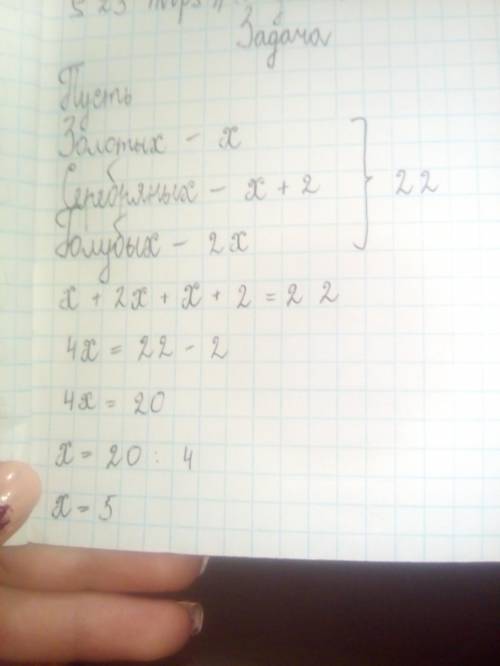 Задача
Пусть
Золотых - x
Серебряных - x + 2 } 22
Голубых - 2x
x + 2x + x + 2 = 22
4x = 22 - 2
4x = 20
x = 20 : 4
x = 5